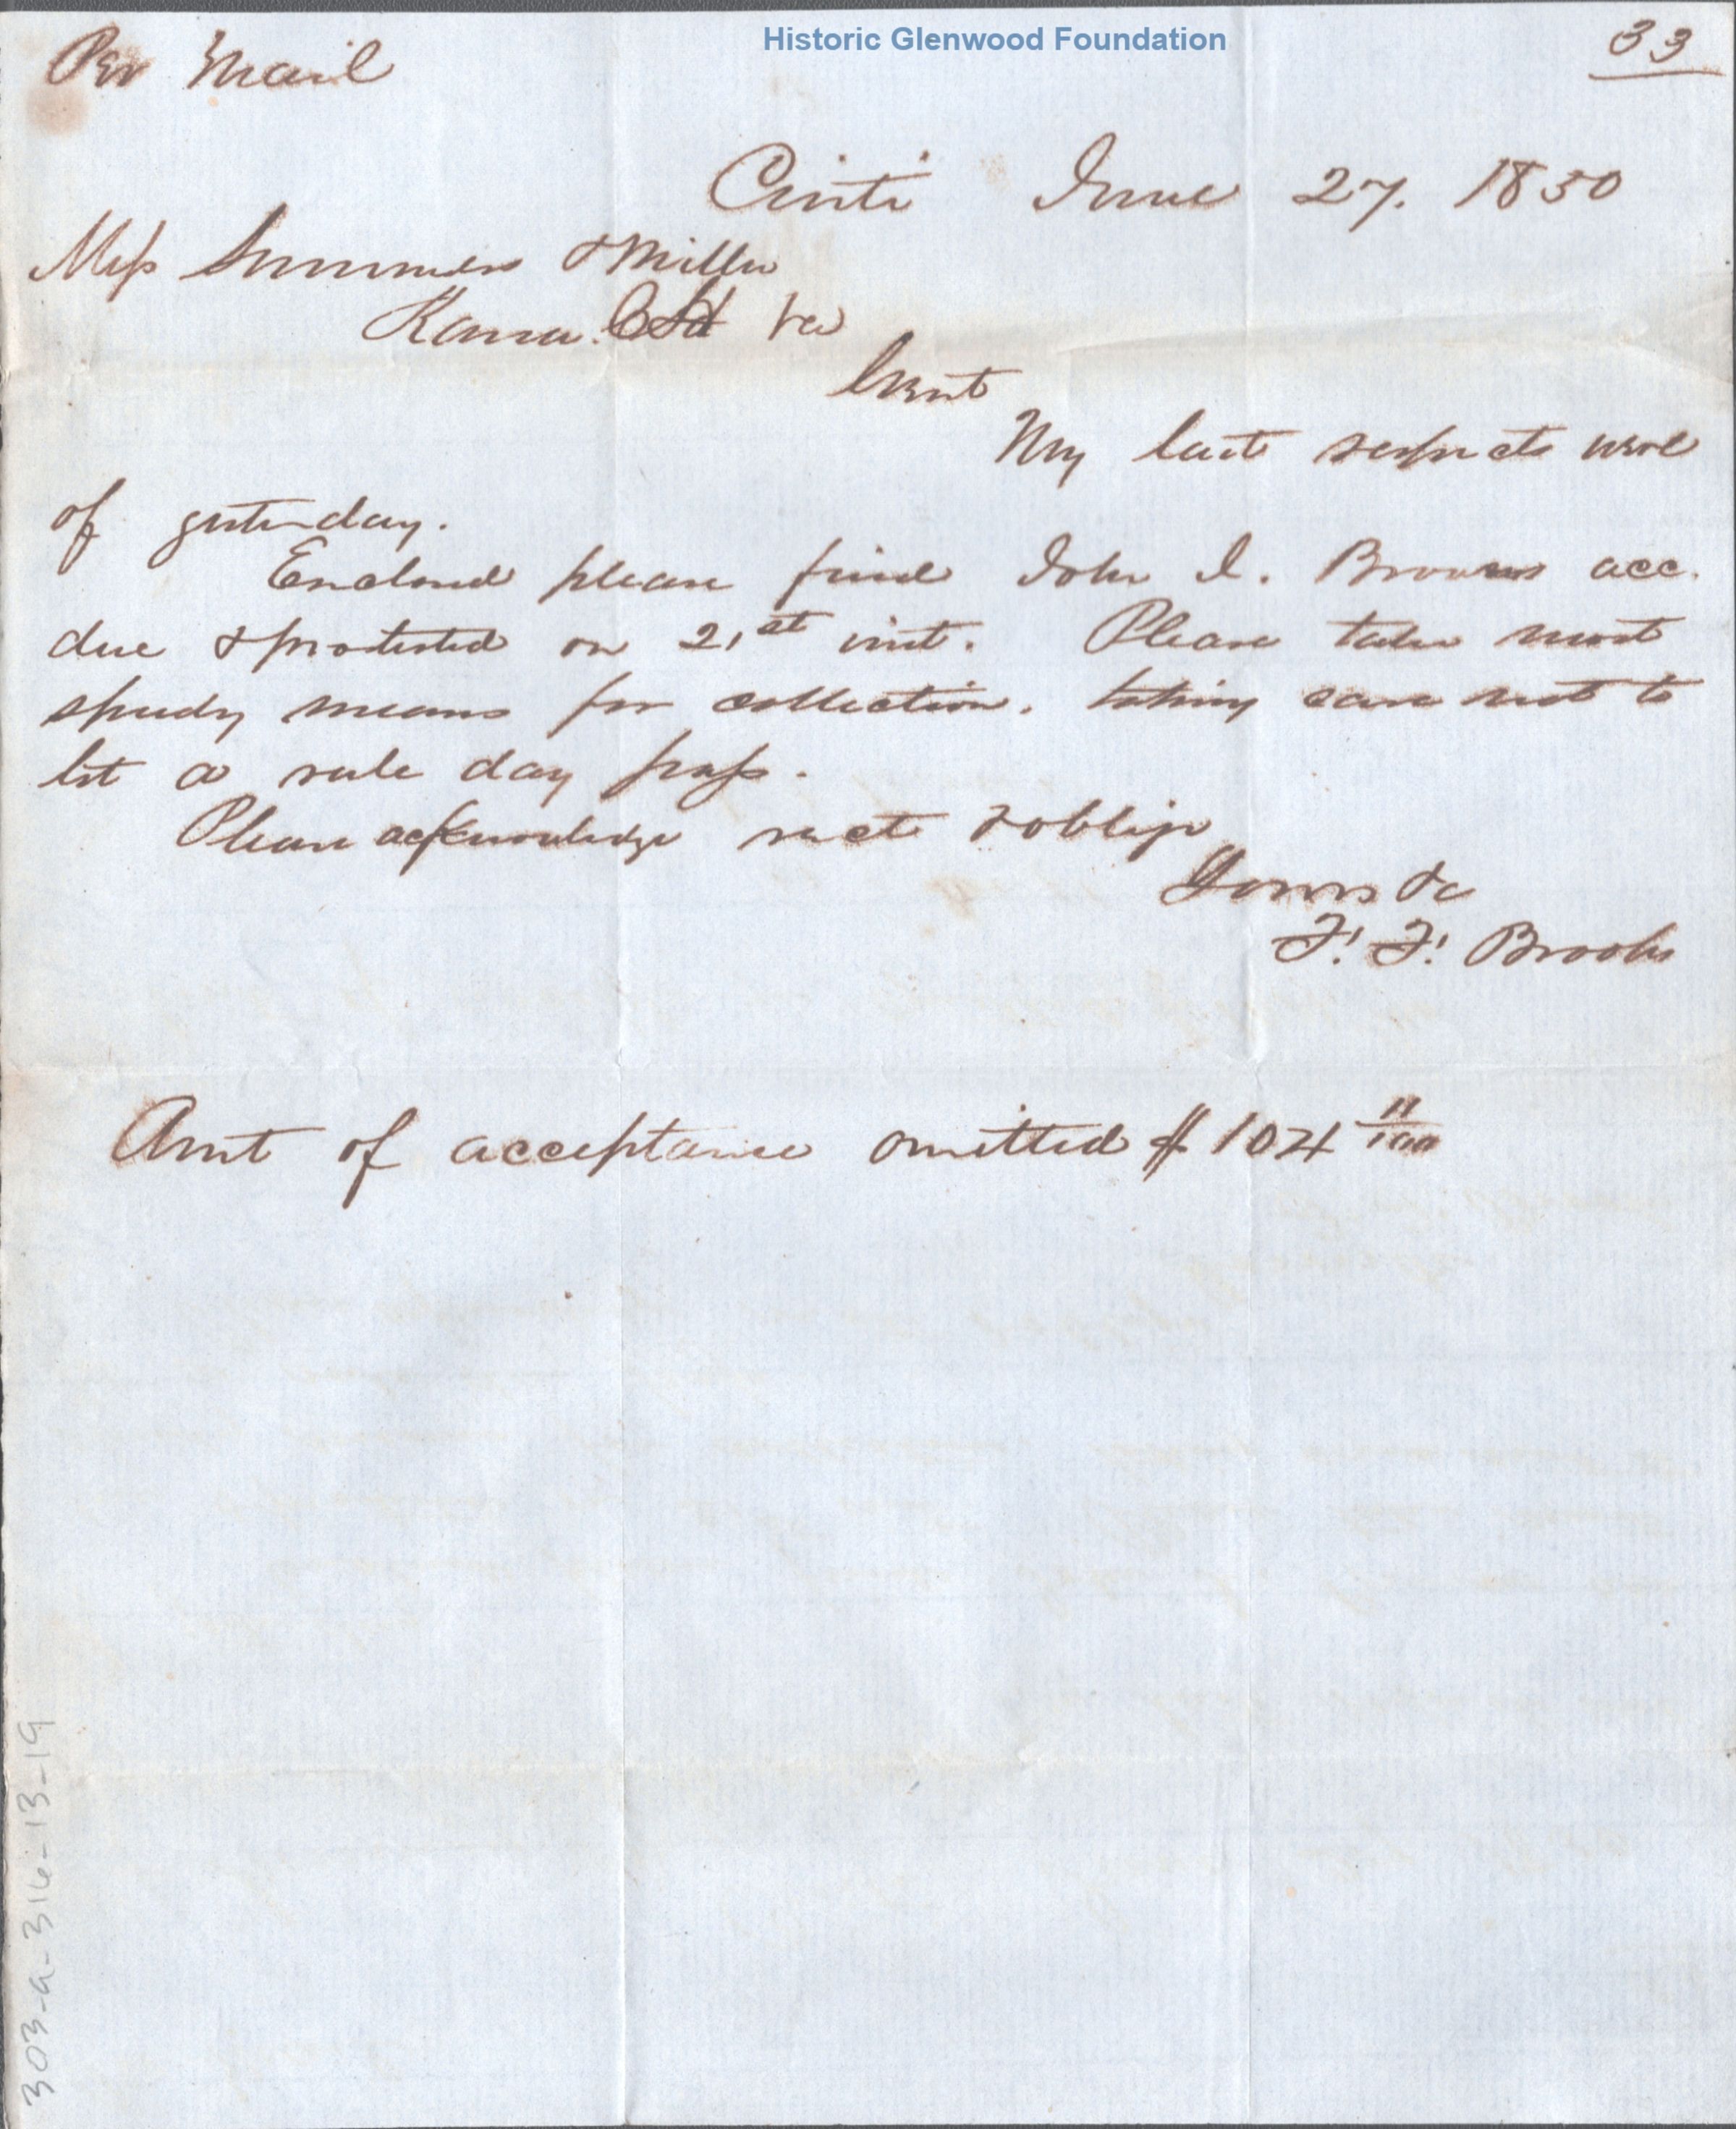 Historic Glenwood Foundation
Per Mail
33
Cinti June 27. 1850
Mess Summers & Miller
Kana. C.H. Va
Gent
My last respects were
of yesterday.
Enclosed please find John I. Browns acc.
due & protested on 21st inst. Please take most
speedy means for collection, taking care not to
let a rule day pass.
Please acknowledge rect & oblige
Yours &c
F. F. Brooks
Amt of acceptance omitted $ 104 11/100
303-a-316-13-19